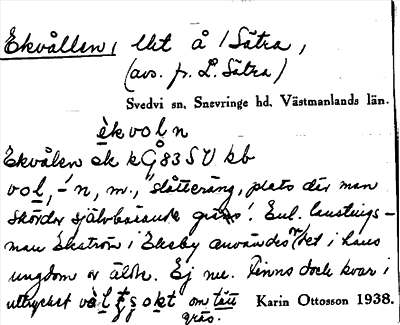 Ekvållen, llet å 1 Sätra,
(avs. fr. L. Sätra)
Svedvi sn, Snevringe hd, Västmanlands län.
èkvoln
Ekvålen ek kG 83 SV kb
vol, -´n, m., "slåtteräng, plats där man
skördar självbärande gräs". Enl. lantbruks-
man Ekström i Ekeby användes ordet i hans
ungdom o äldre. Ej nu. Finns dock kvar i
uttrycket om tätt
gräs. Karin Ottosson 1938.